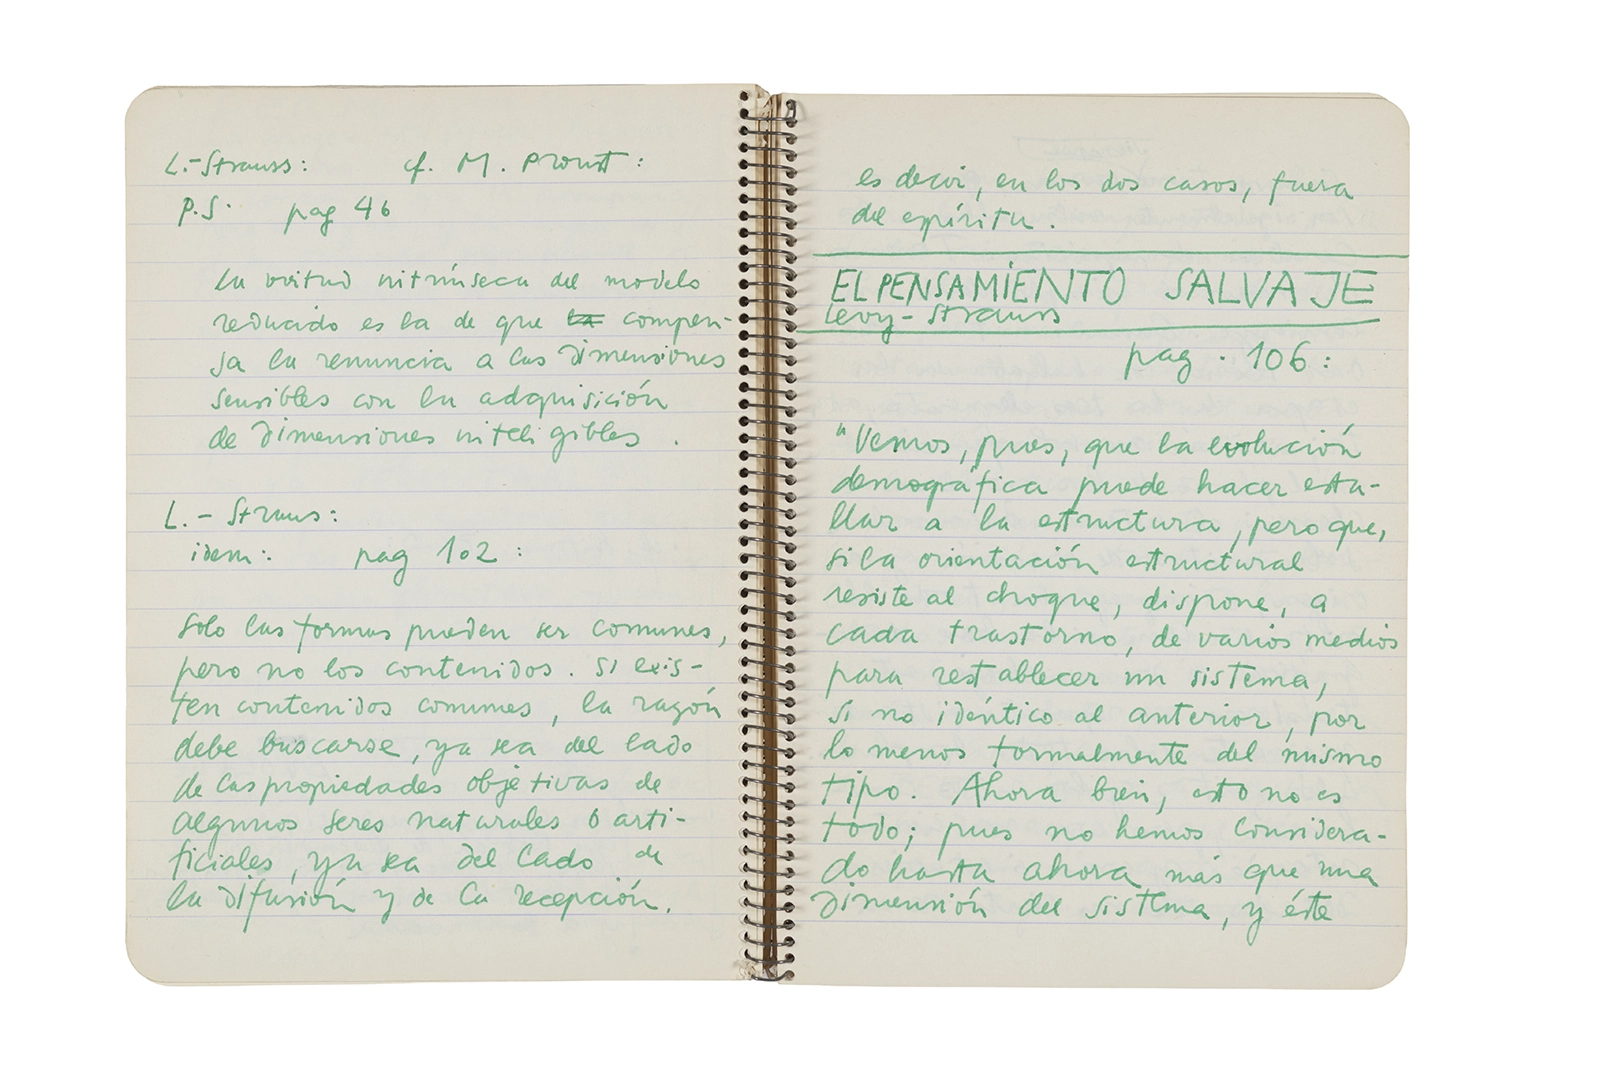 L.-Strauss: cf. M. Proust:
P.S. pag 46
la virtud intrínseca del modelo
reducido es la de que la compen-
sa la renuncia a las dimensiones
sensibles con la adquisición
de dimensiones inteligibles.
L.-Straus:
idem: pag 102:
Solo las formas pueden ser comunes,
pero no los contenidos. Si exis-
ten contenidos comunes, la razón
debe buscarse, ya sea del lado
de las propiedades objetivas de
algunos seres naturales o arti-
ficiales, ya sea del lado de
la difusión y de la recepción.
es decir, en los dos casos, fuera
del espíritu.
EL PENSAMIENTO SALVAJE
Levy-Strauss
pag. 106:
"Vemos, pues, que la evolución
demográfica puede hacer esta-
llar a la estructura, pero que,
si la orientación estructural
resiste al choque, dispone, a
cada trastorno, de varios medios
para restablecer un sistema,
si no idéntico al anterior, por
lo menos formalmente del mismo
tipo. Ahora bien, esto no es
todo; pues no hemos considera-
do hasta ahora más que una
dimensión del sistema, y éste